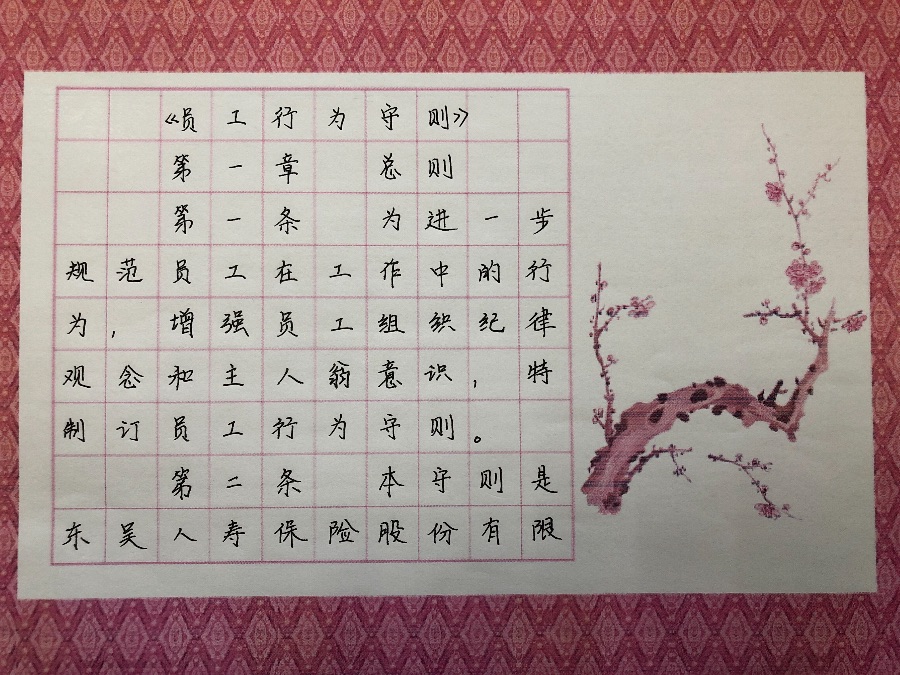 《员工行为守则》
第一章 总则
第一条 为进一步
规范员工在工作中的行
为，增强员工组织纪律
观念和主人翁意识，特
制订员工行为守则。
第二条 本守则是
东吴人寿保险股份有限